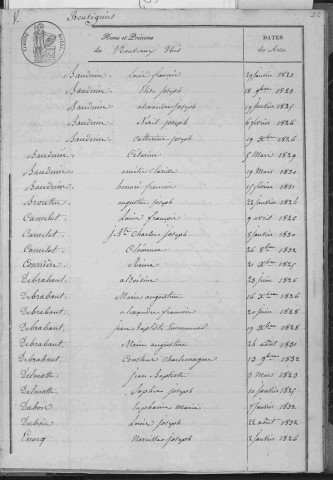 V. Boutignies
Noms et Prénoms
des Nouveaux Nés
DATES
des Actes.
Bauduin Louis françois 29 janvier 1821
Bauduin 18 9bre 1823
Bauduin alexandre joseph 19 janvier 1825
Bauduin joseph 6 février 1826
Bauduin Catherine joseph 19 Xbre 1826
Bauduin Célarine 5 Mars 1829
Bauduin aimée Clarisse 19 Mars 1830
Bauduin honoré françois 15 février 1831
Broutin augustin joseph 22 janvier 1824
Camelot Louis françois 9 avril 1820
Camelot J.Bte Charles joseph 8 janvier 1830
Camelot Clémence 26 8bre 1832
Courrière Reine 21 Xbre 1825
Debrabant aloïsine 23 juin 1826
Debrabant Marie augustine 16 Xbre 1826
Debrabant alexandre françois 20 juin 1828
Debrabant jean Baptiste Emmanuel 19 Xbre 1828
Debrabant Marie augustine 26 août 1831
Debrabant Constant Charlemagne 13 9bre 1832
Delmotte jean Baptiste 3 Mars 1823
Delmotte Sophie joseph 10 janvier 1825
Duboin Euphanie Marie 7 janvier 1832
Duboin Louis joseph 22 août 1832
Enocq Marcellin joseph 2 janvier 1826